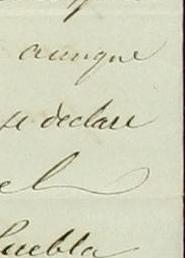 aunque
se declare
el
Puebla